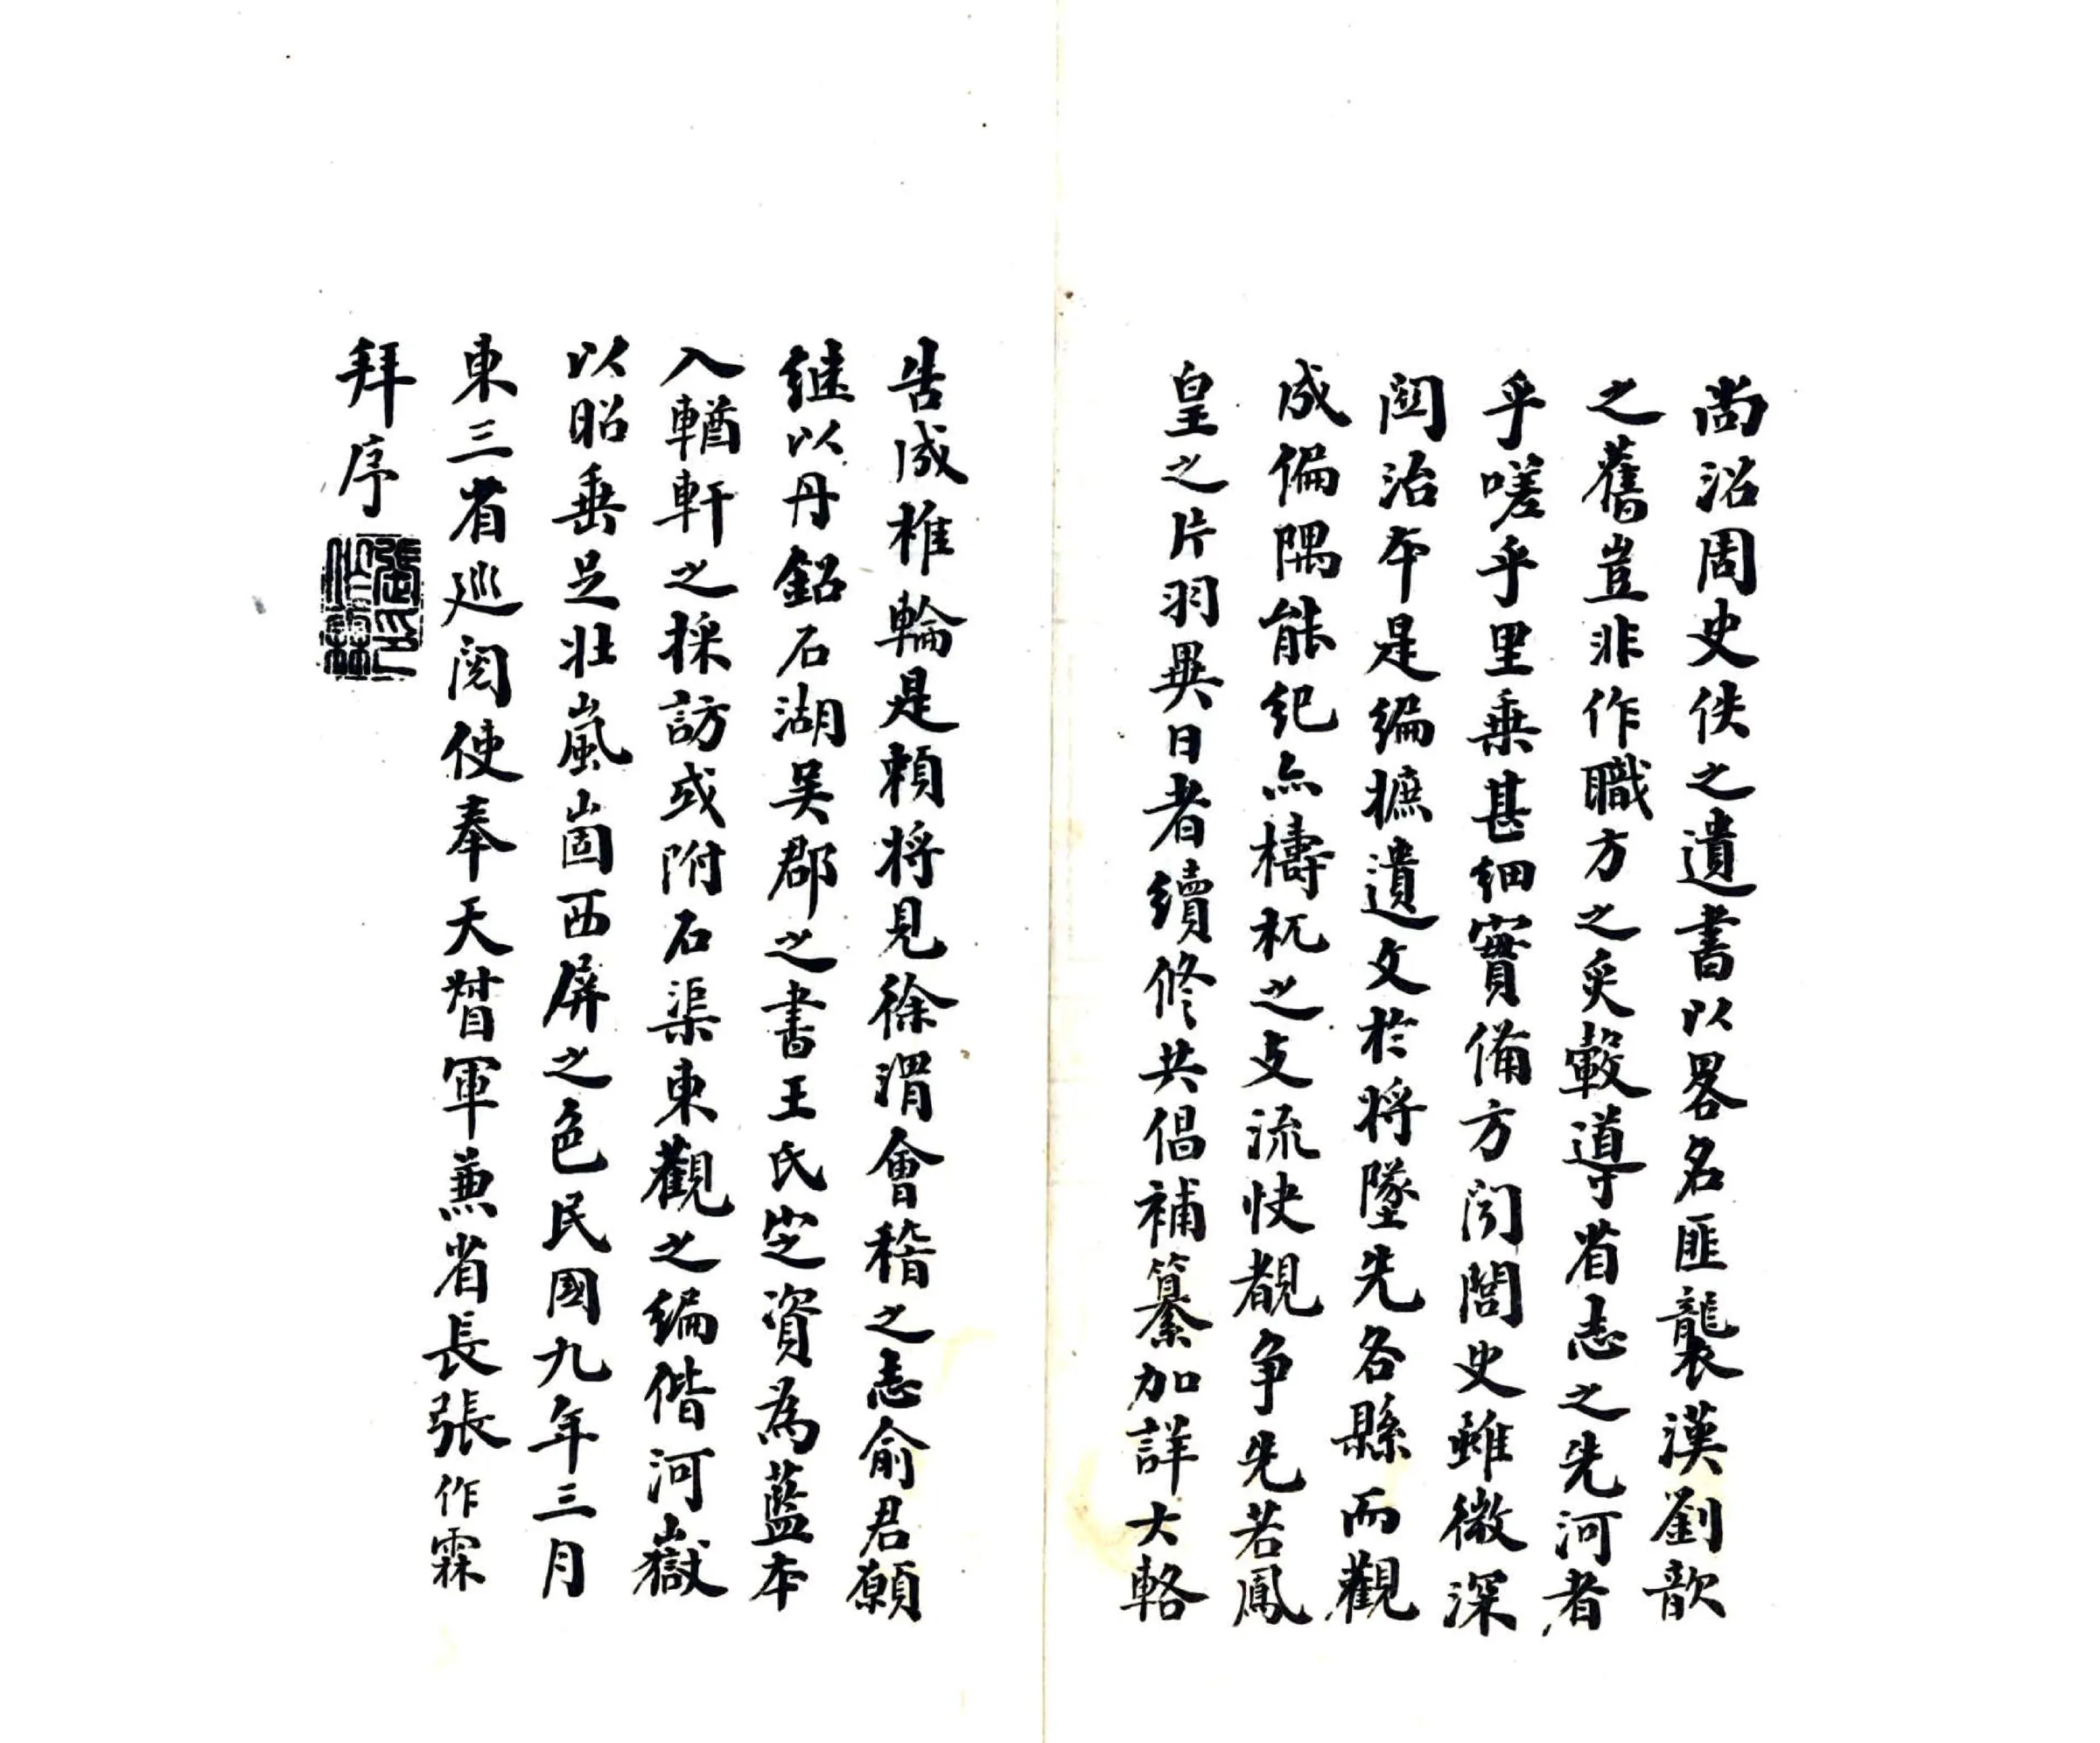 尚沿周史佚之遺書以畧名匪襲漢劉歆
之舊豈非作職方之炙轂導省志之先河者
乎嗟乎里乗甚細實備方闻閭史雖微深
関治本是编摭遺文於将墜先各縣而觀
成偏隅能纪亦檮杌之支流快覩争先若鳳
皇之片羽異日者續修共倡補纂加詳大輅
告成椎輪是賴将見徐渭會稽之志俞君願
继以丹鉛石湖吴郡之書王氏定資為藍本
入輶軒之採訪或附石渠東觀之编偕河嶽
以昭垂足壮嵐崮西屏之色民國九年三月
東三省巡閲使奉天督軍兼省長張作霖
拜序
張作霖印